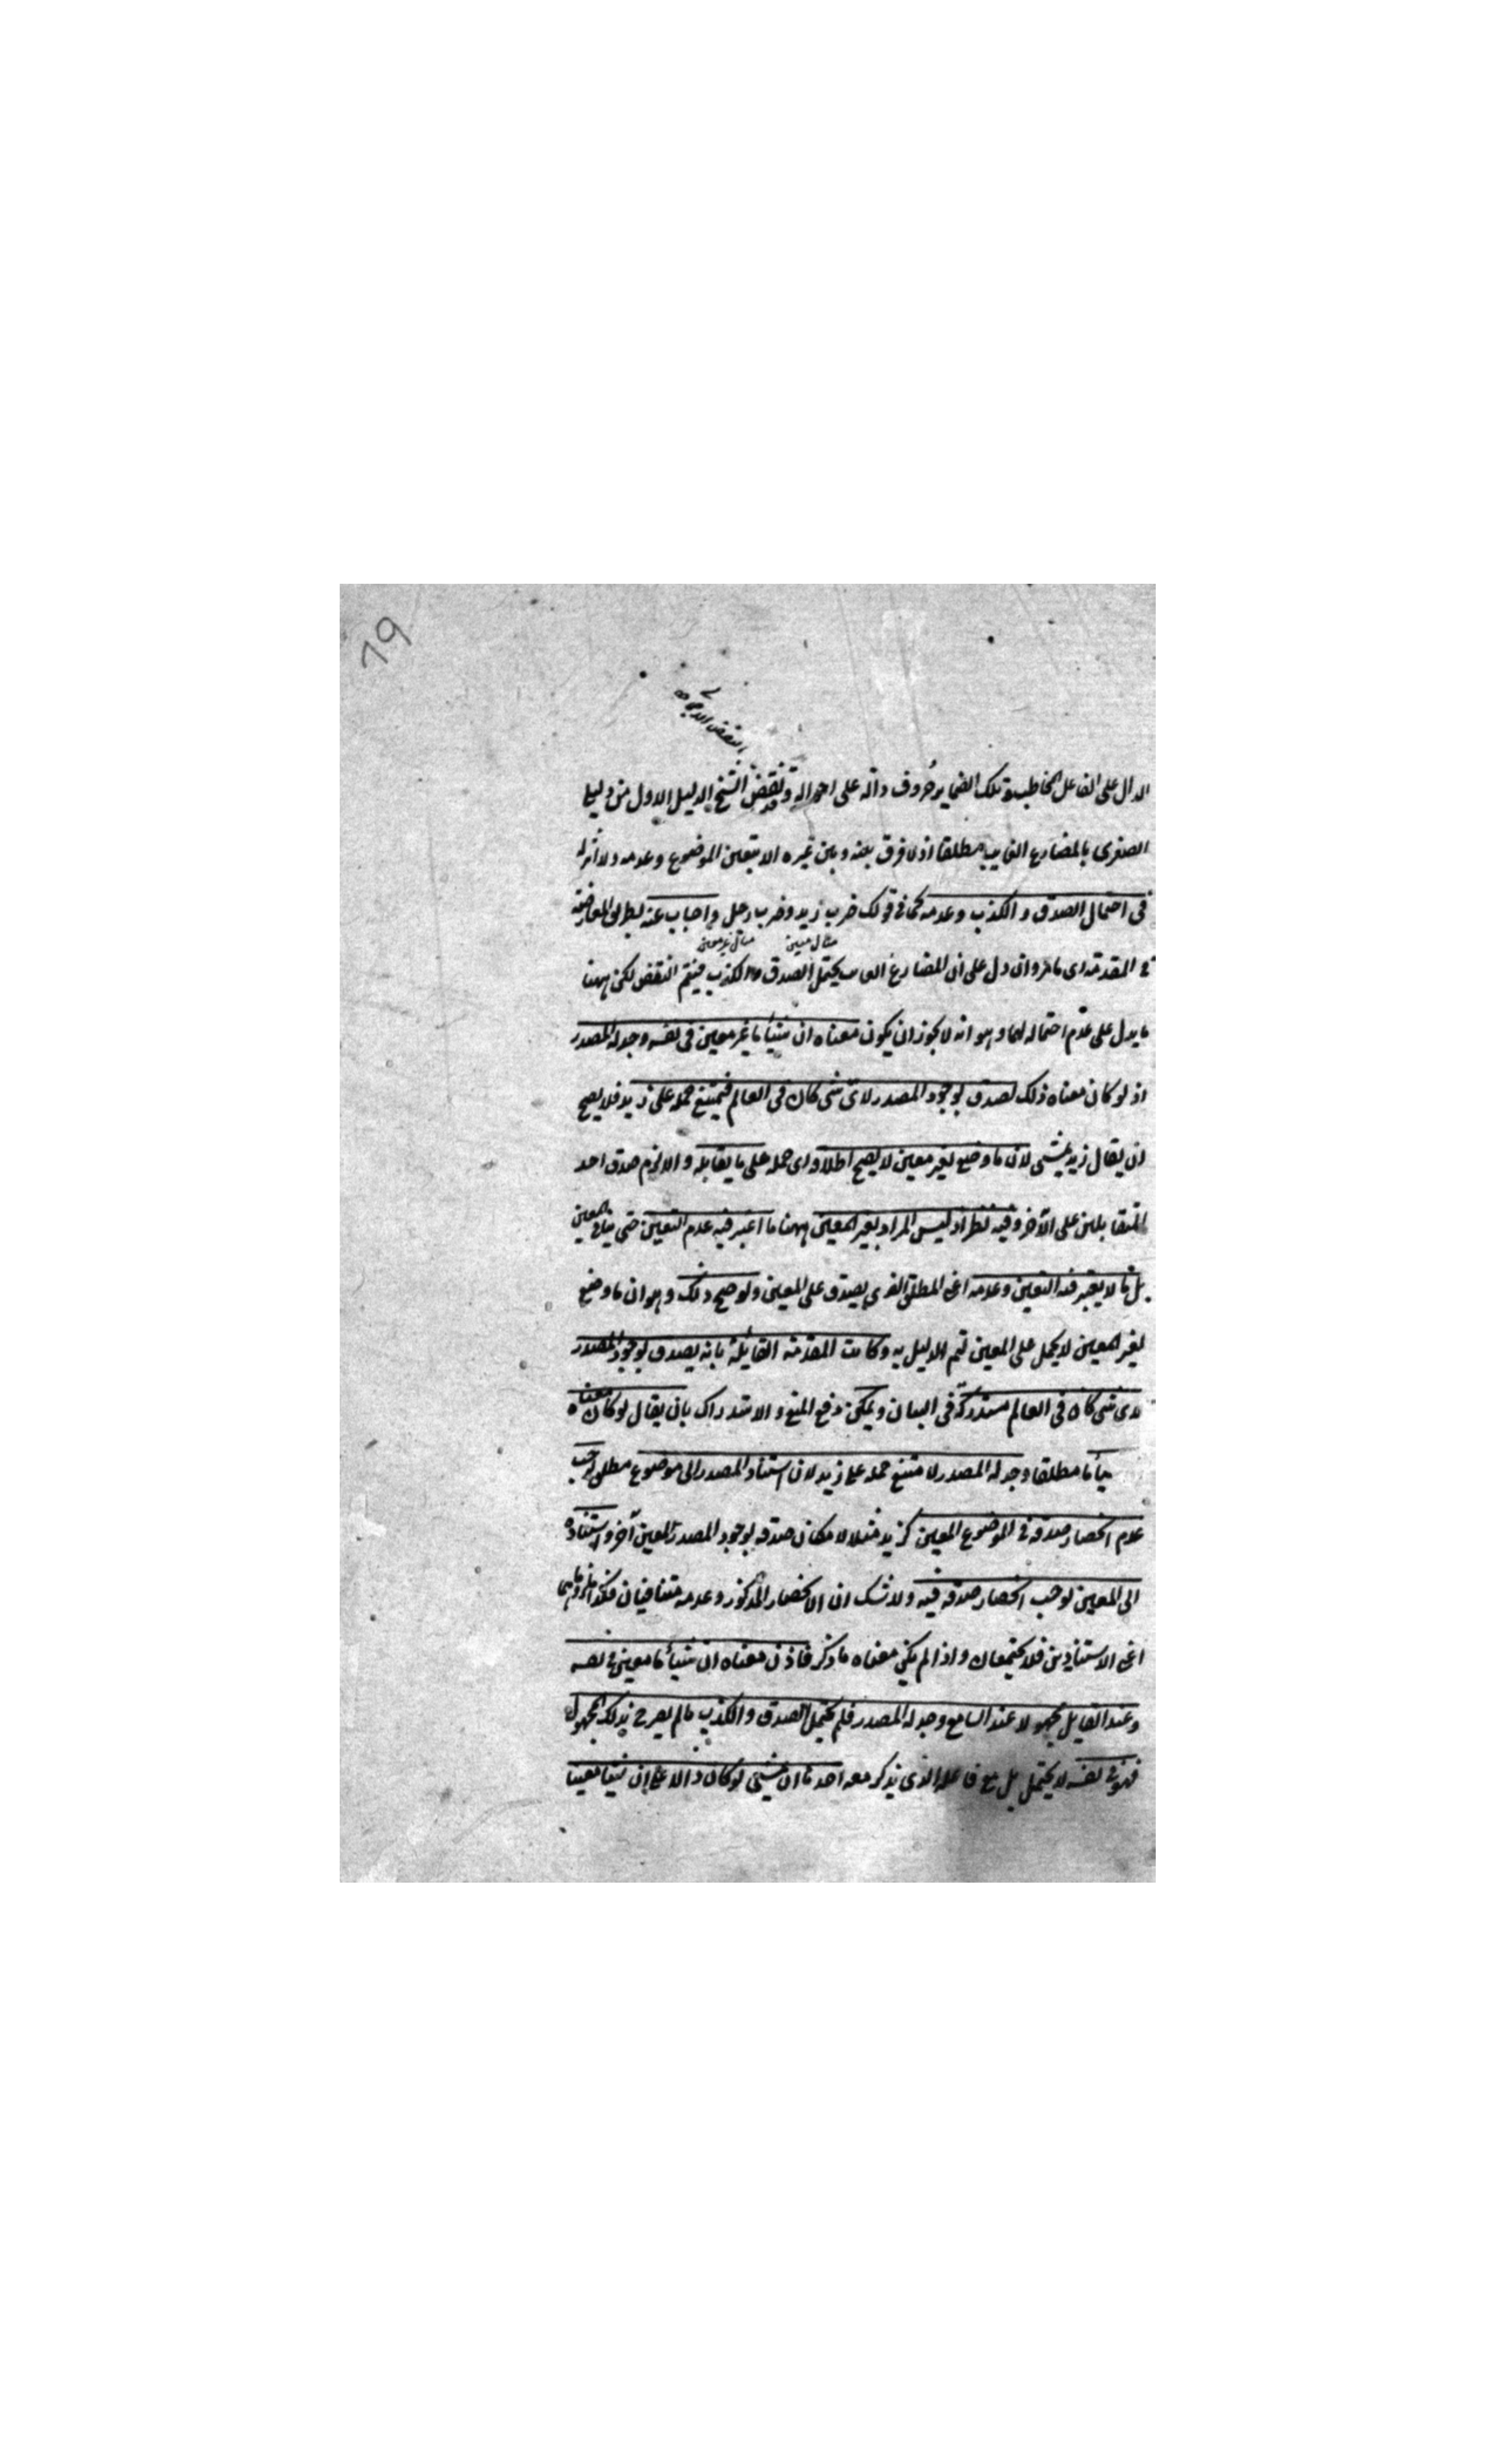 19
النقض الاجوبة
الدال على الفاعل المخاطب وتلك الضماير حروف دالة على احواله وقد نقض الشيخ الدليل الاول من دليلى
الصغرى بالمضارع الغايب مطلقا اذ لا فرق بينه وبين غيره الا بتعين الموضوع وعدمه ولا اثر له
فى احتمال الصدق والكذب وعدمه كما فى قولك ضرب زيد وضرب رجل واجاب عنه بطريق المعارضة
مثال معين مثال غير معين
فى المقدمة اى ما مر وان دل على ان المضارع الغايب يحتمل الصدق والكذب فيتم النقض لكن ههنا
ما يدل على عدم احتماله لهما وهو انه لا يجوز ان يكون معناه ان شيئا ما غير معين فى نفسه وجد له المصدر
اذ لو كان معناه ذلك لصدق بوجود المصدر لاى شى كان فى العالم فيمتنع حمله على زيد فلا يصح
ان يقال زيد يمشى لان ما وضع لغير معين لا يصح اطلاقه اى حمله على ما يقابله والا لزم صدق احد
المتقابلين على الآخر وفيه نظر اذ ليس المراد بغير المعين ههنا ما اعتبر فيه عدم التعين حتى ينافى المعين
بل ما لا يعتبر فيه التعين وعدمه اعنى المطلق الذى يصدق على المعين ولو صح ذلك وهو ان ما وضع
لغير المعين لا يحمل على المعين لتم الدليل به وكانت المقدمة القايلة بانه يصدق بوجود المصدر
لاى شى كان فى العالم مستدركة فى البيان ويمكن دفع المنع والاستدراك بان يقال لو كان معناه
شيأ ما مطلقا وجد له المصدر لامتنع حمله على زيد لان استناد المصدر الى موضوع مطلق يوجب
عدم انحصار صدقه فى الموضوع المعين كزيد مثلا لامكان صدقه بوجود المصدر لمعين آخر واستناده
الى المعين يوجب انحصار صدقه فيه ولا شك ان الانحصار المذكور وعدمه متنافيان فكذا ملزوماهما
اعنى الاستنادين فلا يجتمعان واذا لم يكن معناه ما ذكر فاذن معناه ان شيأ ما معين فى نفسه
وعند القايل مجهولا عند السامع وجد له المصدر فلم يحتمل الصدق والكذب ما لم يصرح بذلك المجهول
فهو فى نفسه لا يحتمل بل مع فاعله الذى يذكر معه احدها ان يمشى لو كان دالا على ان شيئا معينا